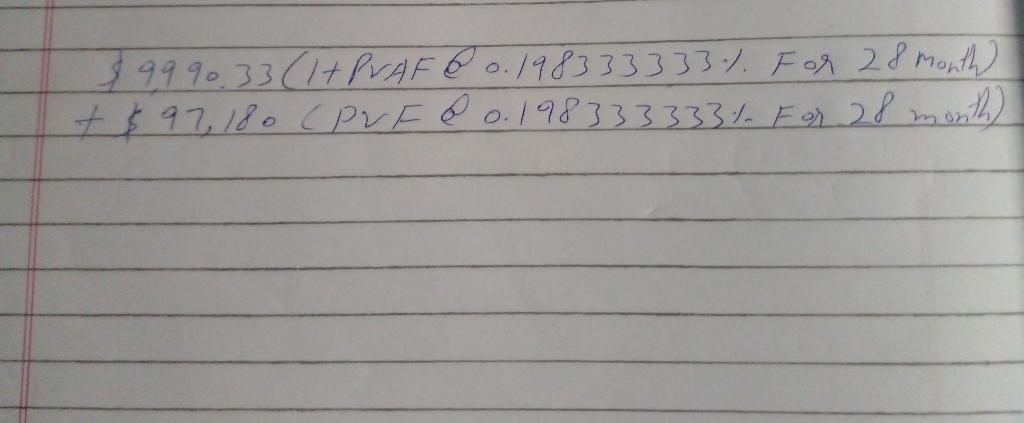 $ 9,990.33 (1+PVAF @ 0.198333333%. For 28 month)
+ $ 97,180 (PVF @ 0.198333333% For 28 month)